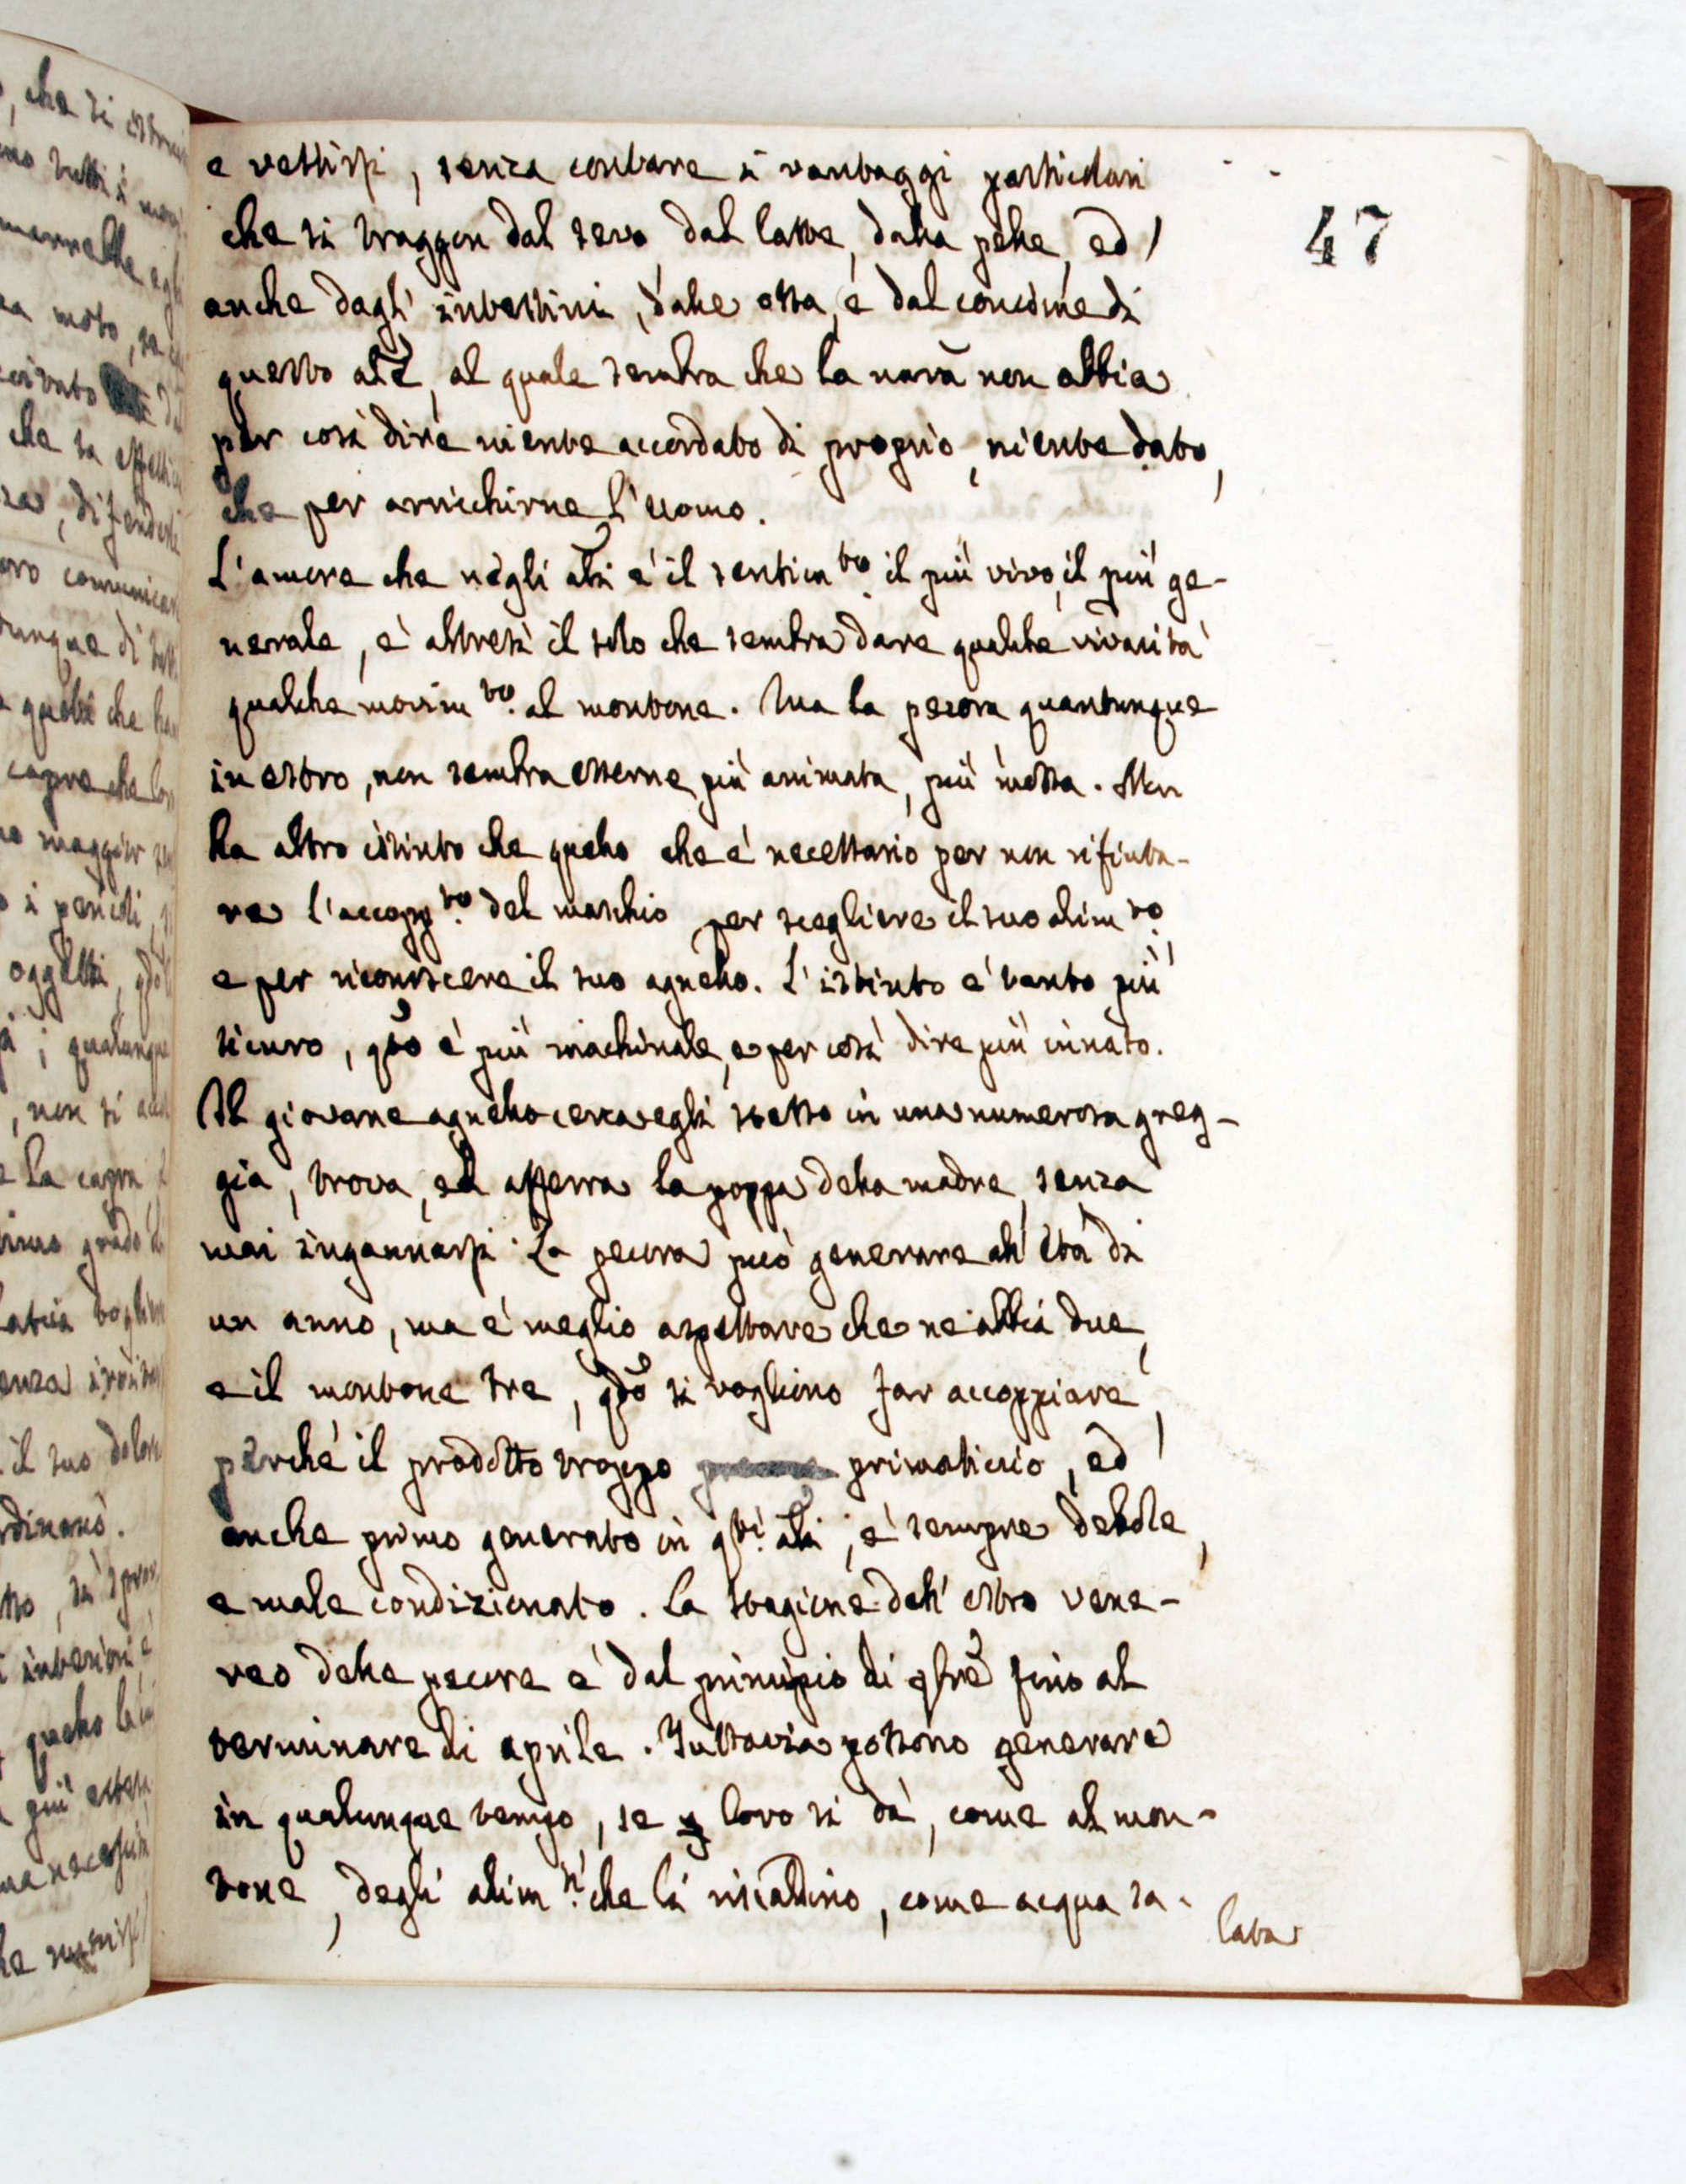 47
e vestirsi, senza contare i vantaggi particolari
che si traggon dal sevo, dal latte, dalla pelle, ed
anche dagli intestini, dalle ossa, e dal concime di
questo ale, al quale sembra che la nara non abbia
per così dire niente accordato di proprio, niente dato,
che per arricchirne l'uomo.
L'amore che negli ali è il sentimto. il più vivo, il più ge-
nerale, è altresì il solo che sembra dare qualche vivacità
qualche movimto. al montone. Ma la pecora quantunque
in estro, non sembra esserne più animata, più mossa. Non
ha altro istinto che quello che è necessario per non rifiuta-
re l'accoppto. del maschio per scegliere il suo alimto.
e per riconoscere il suo agnello. L'istinto è tanto più
sicuro, qto è più machinale, e per così dire più innato.
Il giovane agnello cerca egli stesso in una numerosa greg-
gia, trova, ed afferra la poppa della madre, senza
mai ingannarsi. La pecora può generare all'età di
un anno, ma è meglio aspettare che ne abbia due,
e il montone tre, qdo si vogliono far accoppiare,
perché il prodotto troppo primaticcio, ed
anche primo generato in qti. ali, è sempre debole,
e male condizionato. La stagione dell'estro vene-
reo delle pecore è dal principio di 9bre fino al
terminare di aprile. Tuttavia possono generare
in qualunque tempo, se loro si dà, come al mon-
tone, degli alimti. che li riscaldino, come acqua sa-
lata